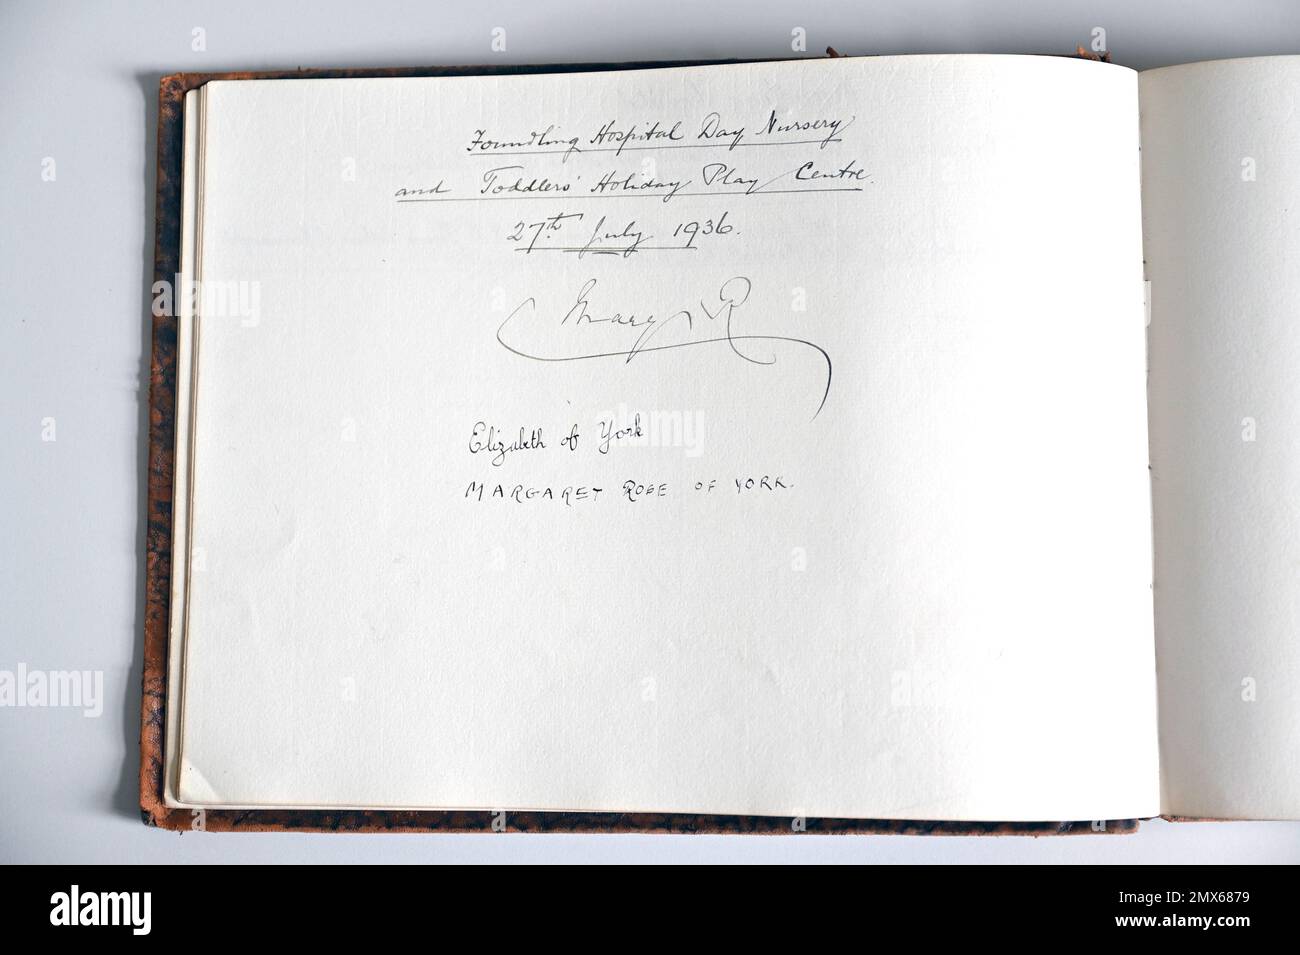 Foundling Hospital Day Nursery
and Toddlers' Holiday Play Centre.
27th July 1936.
Mary R
Elizabeth of York
MARGARET ROSE OF YORK.
alamy
alamy
Image ID: 2MX6879
www.alamy.com